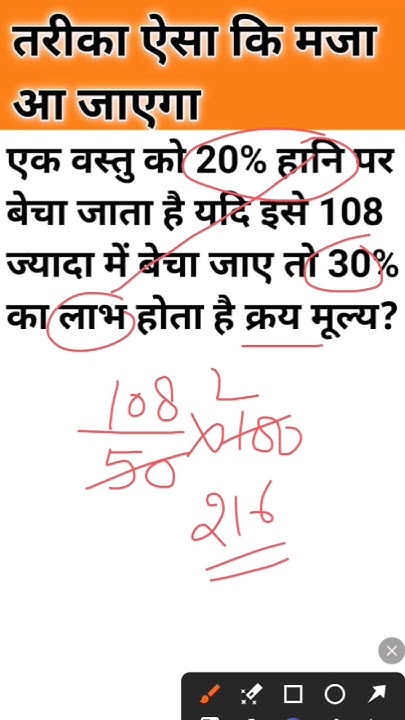 तरीका ऐसा कि मजा
आ जाएगा
एक वस्तु को 20% हानि पर
बेचा जाता है यदि इसे 108
ज्यादा में बेचा जाए तो 30%
का लाभ होता है क्रय मूल्य?
108 2
50 × 100
216